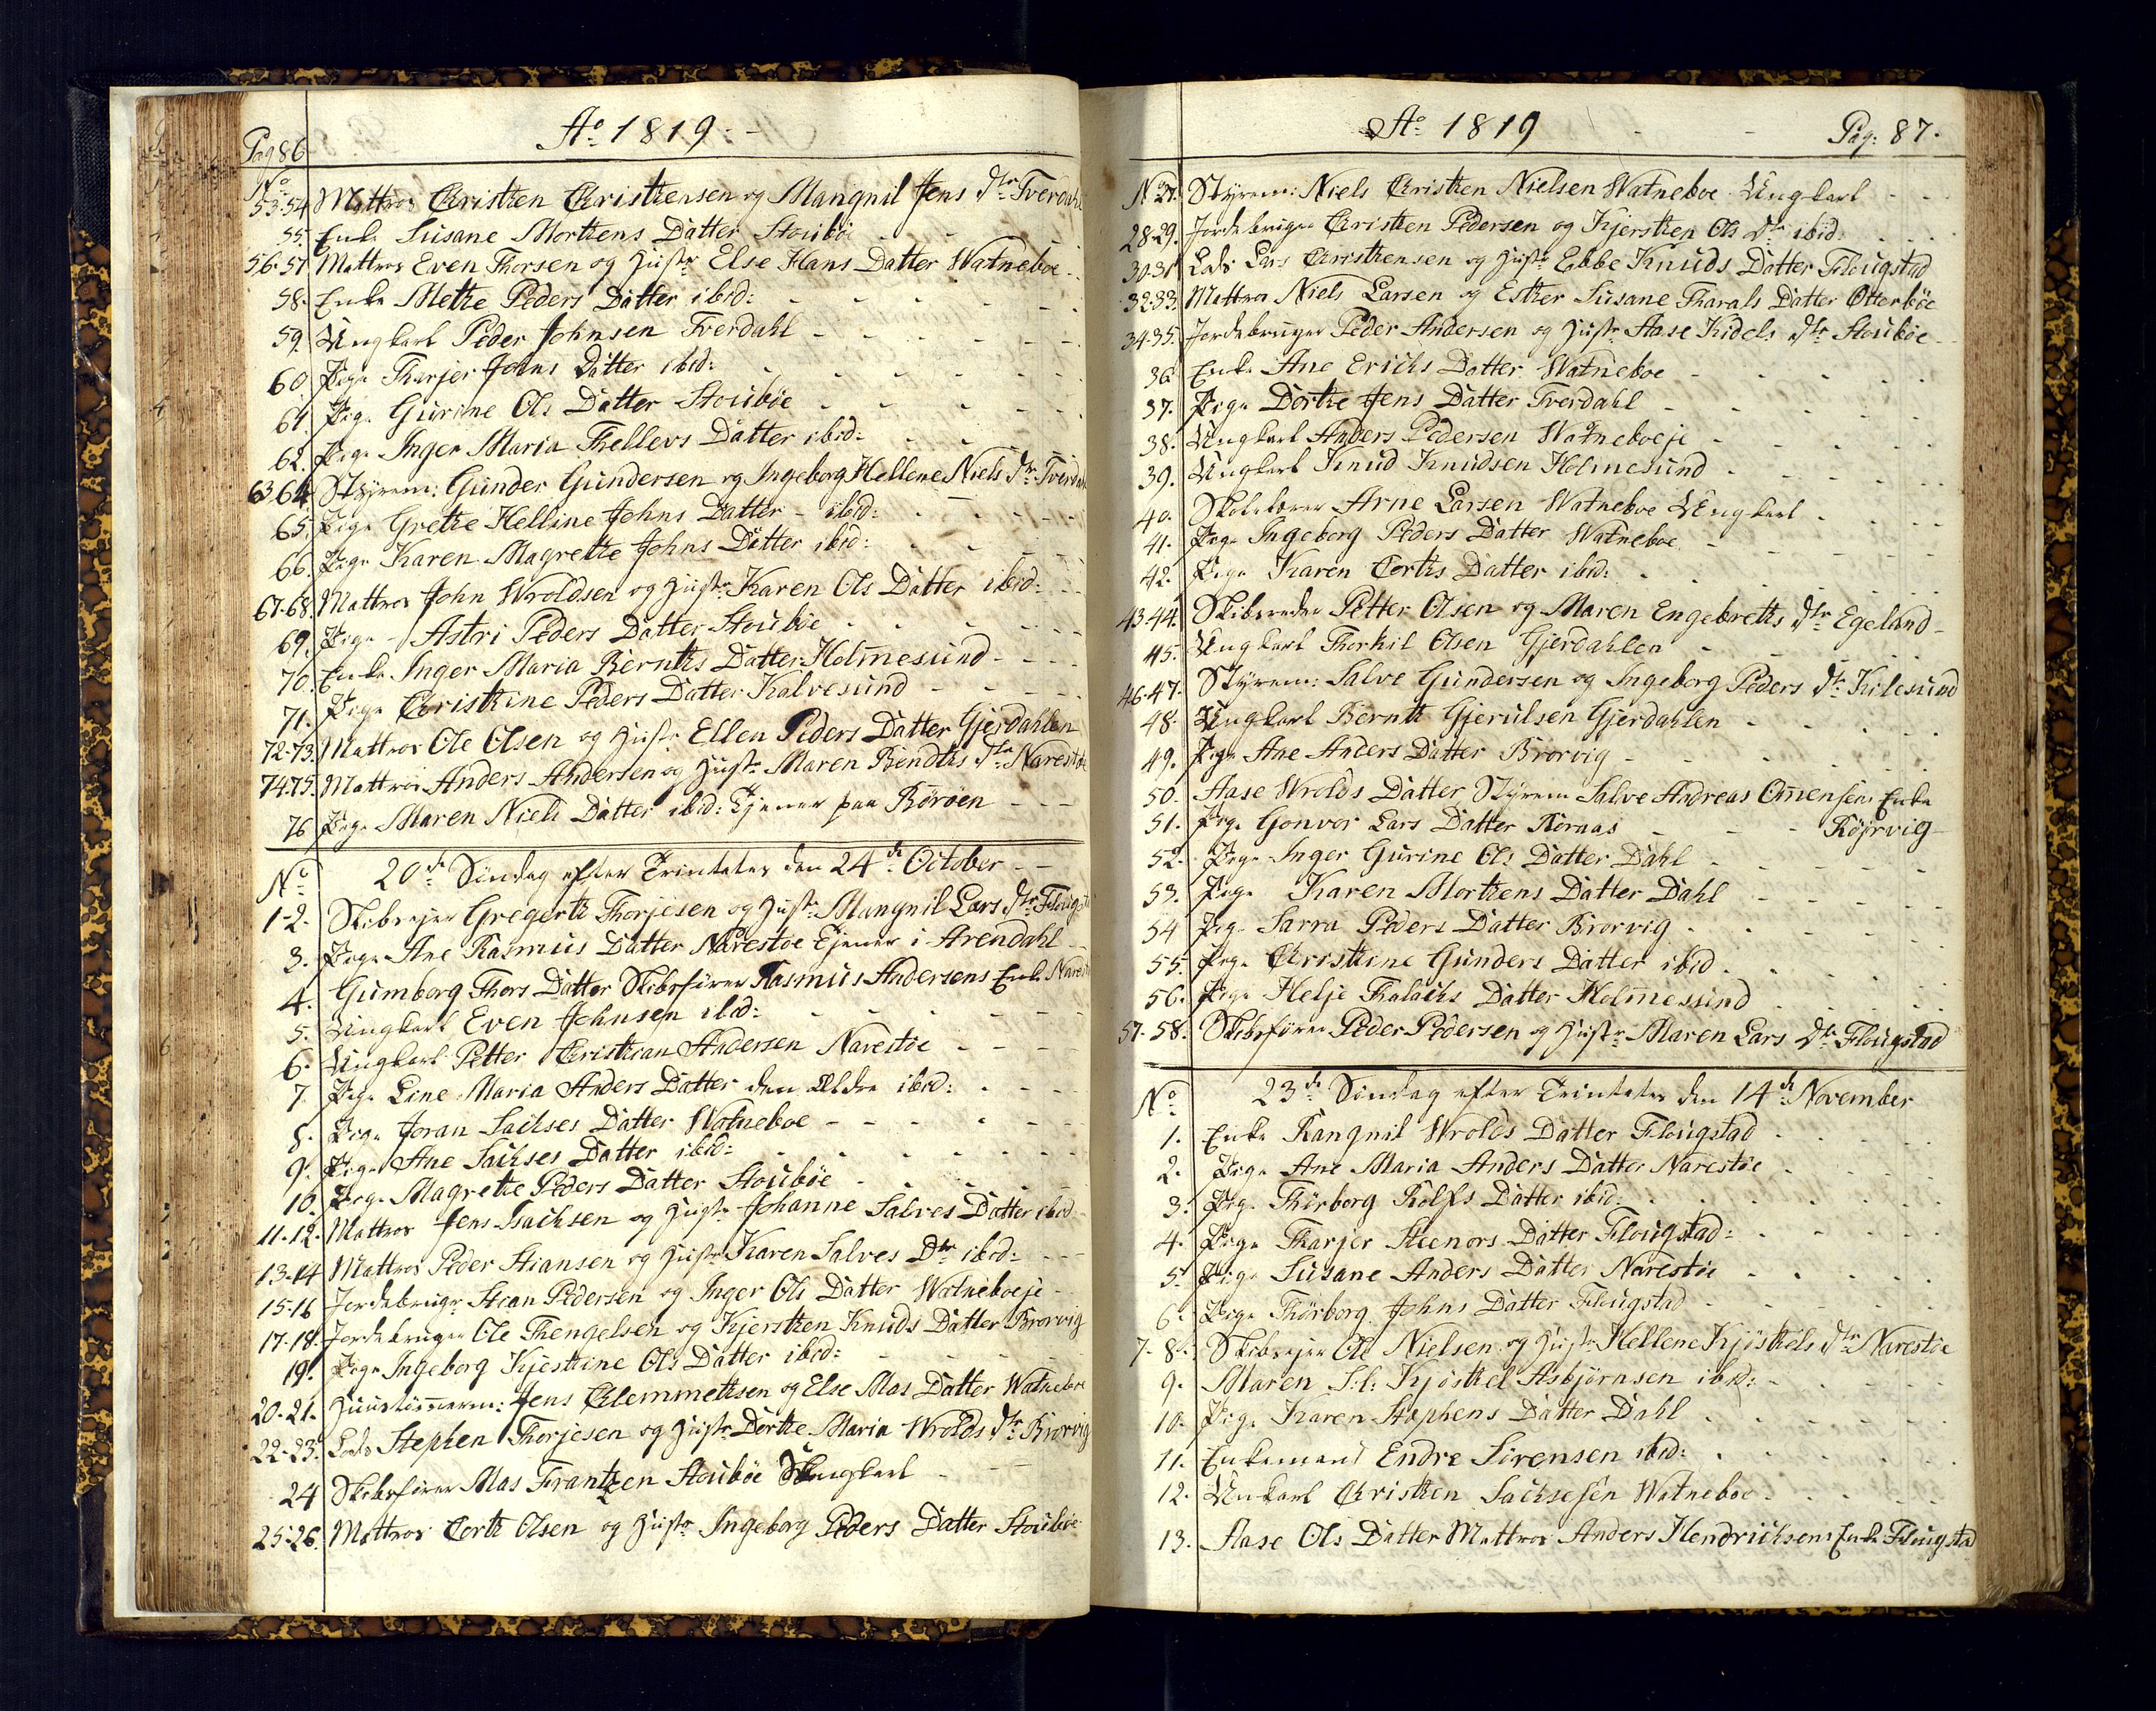 Pag 86
Ao 1819.
No
53.54 Mattros Christhen Christhensen og Mangnil Jens Dtr Tverdahl
55. Enke Susane Morthens Datter Stoubøe
56.57 Mattros Even Thorsen og Hustr Else Hans Datter Watneboe
58. Enke Methe Peders Datter ibid:
59. Ungkarl Peder Johnsen Tverdahl
60 Pige Tharjer Johns Datter ibid:
61. Pige Gurine Ols Datter Stoubøe
62. Pige Inger Maria Thellevs Datter ibid:
63 64 Styrem: Gunder Gundersen og Ingeborg Hellene Niels Dtr Tverdahl
65. Pige Grethe Helline Johns Datter - ibid:
66. Pige Karen Magrethe Johns Datter ibid:
67.68. Mattros John Wroldsen og Hustr Karen Ols Datter ibid:
69. Pige Astri Peders Datter Stoubøe
70. Enke Inger Maria Bernths Datter Holmesund
71. Pige Christhine Peders Datter Kalvesund
72-73. Mattros Ole Olsen og Hustr Ellen Peders Datter Gjerdahlen
74.75. Mattros Anders Andersen og Hustr Maren Bendths Dtr Narestøe
76 Pige Maren Niels Datter ibid: Tjener paa Børøen
No 20de Søndag efter Trinitates den 24de October
1-2. Skibsejer Gregerth Thorjesen og Hustr Mangnil Lars Dtr Flougstad
3. Pige Ane Rasmus Datter Narestøe Tjener i Arendahl
4. Gumborg Thors Datter Skibsfører Rasmus Andersens Enke Narest
5. Ungkarl Even Johnsen ibid:
6. Ungkarl Petter Christhian Andersen Narestøe
7. Pige Line Maria Anders Datter den Ældre ibid:
8. Pige Joran Sachses Datter Watneboe
9. Pige Ane Sachses Datter ibid:
10. Pige Magrethe Peders Datter Stoubøe
11-12. Mattros Jens Isachsen og Hustr Johanne Salves Datter ibid
13-14 Mattros Peder Stiansen og Hustr Karen Salves Dtr ibid:
15-16 Jordebruger Stean Pedersen og Inger Ols Datter Watneboeje
17-18. Jordebruger Ole Thengelsen og Kjersthen Knuds Datter Brorvig
19. Pige Ingeborg Kjesthine Ols Datter ibid:
20-21. Huustømerm: Jens Clemmethsen og Else Mas Datter Watnebo
22-23. Lods Stephen Thorjesen og Hustr Dorthe Maria Wrolds Dtr Brorvig
24 Skibsfører Mas Frantzen Stoubøe Ungkarl
25-26. Mattros Corth Olsen og Hustr Ingeborg Peders Datter Stoubøe
Ao 1819
Pag: 87.
No 27. Styrem: Niels Christhen Nielsen Watneboe Ungkarl
28-29. Jordebruger Christhen Pedersen og Kjersthen Ols Dtr ibid:
30-31 Lods Lars Christhensen og Hustr Ebbe Knuds Datter Flougstad
32-33. Mattros Niels Larsen og Esther Susane Tharals Datter Otterbøe
34-35. Jordebruger Peder Andersen og Hustr Aase Kidels Dtr Stoubøe
36. Enke Ane Erichs Datter Watneboe
37. Pige Dorthe Jens Datter Tverdahl
38. Ungkarl Anders Pedersen Watneboeje
39. Ungkarl Knud Knudsen Holmesund
40. Skolelærer Arne Larsen Watneboe Ungkarl
41. Pige Ingeborg Peders Datter Watneboe
42. Pige Karen Corths Datter ibid:
43-44. Skibsreder Petter Olsen og Maren Engebreths Dtr Egeland
45. Ungkarl Thorkil Olsen Gjerdahlen
46-47. Styrem: Salve Gundersen og Ingeborg Peders Dtr Kilesund
48. Ungkarl Bernth Gjerulsen Gjerdahlen
49. Pige Ane Anders Datter Brorvig
50. Aase Wrolds Datter Styrem Salve Andreas Omensens Enke
51. Pige Gonvor Lars Datter Rørnas Røjrvig
52. Pige Inger Gurine Ols Datter Dahl
53. Pige Karen Morthens Datter Dahl
54 Pige Sarra Peders Datter Brorvig
55. Pige Christhine Gunders Datter ibid.
56. Pige Helje Thalachs Datter Holmesund
57-58. Skibsfører Peder Pedersen og Hustr Maren Lars Dtr Flougstad
No 23de Søndag efter Trinitates den 14de November
1. Enke Rangnil Wrolds Datter Flougstad
2. Pige Ane Maria Anders Datter Narestøe
3. Pige Thorborg Rolfs Datter ibid:
4. Pige Tharjer Steenors Datter Flougstad:
5. Pige Susane Anders Datter Narestøe
6. Pige Thorborg Johns Datter Flougstad
7-8. Skibsejer Ole Nielsen og Hustr Hellene Kjøsthels Dtr Narestøe
9. Maren S:l: Kjøsthel Asbjørnsen ibid:
10. Pige Karen Stephens Datter Dahl
11. Enkemand Endre Sørensen ibid:
12. Unkarl Christhen Sachsesen Watneboe
13. Aase Ols Datter Mattros Anders Hendrichsens Enke Flougstad